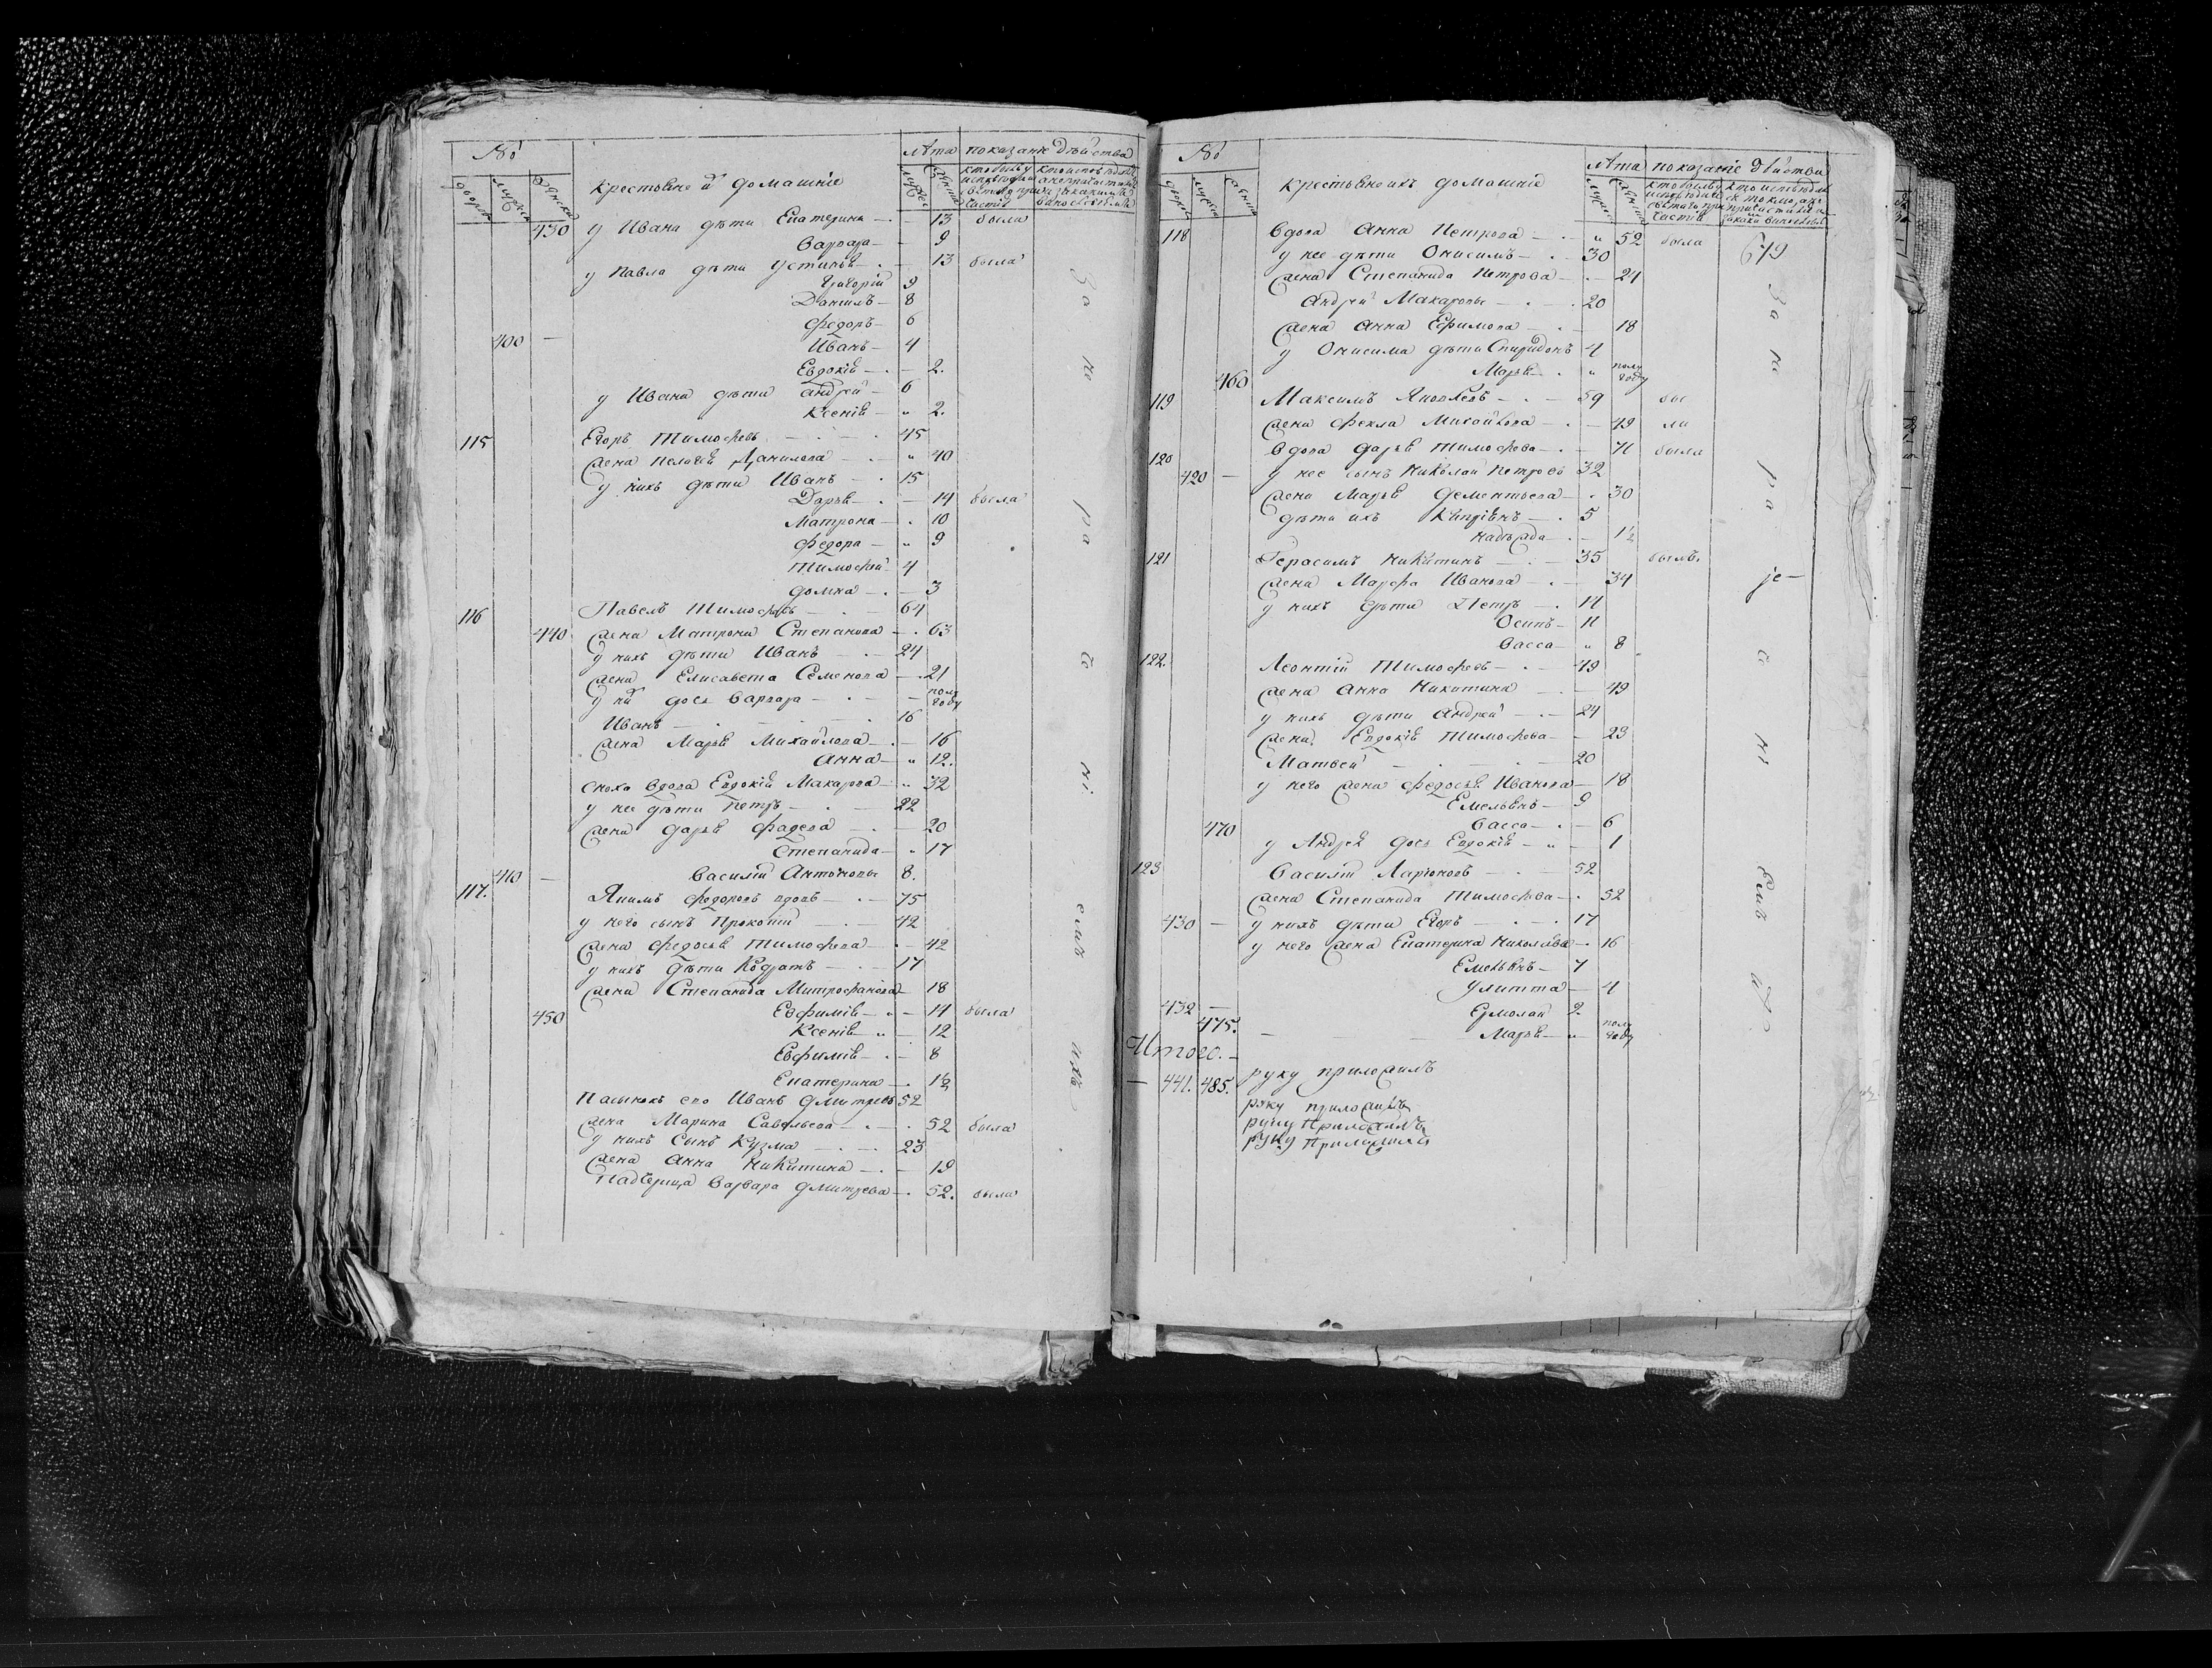 № лѣта показание дѣйства
дворовъ мужеска женска крестьяне и домашние мужес женска
430 у Ивана дѣти Екатерина 13 была
Варвара 9
у Павла дѣти Устинья 13 была
Григорій 9
Данилъ 8
Федоръ 6
400 Иванъ 4
Евдокія 2.
у Ивана дѣти Андрей 6
Ксенія 2.
115 Егоръ Тимофеевъ 45
жена Пелагея Данилова 40
у нихъ дѣти Иванъ 15
Дарья 14 была
Матрона 10
Федора 9
Тимофей 4
Домна 3
116 Павелъ Тимофеевъ 64
440 жена Матрона Степанова 63
у нихъ дѣти Иванъ 24
жена Елисавета Семенова 21
дочь Варвара полу году
Иванъ 16
жена Марья Михайлова 16
Анна 12.
сноха вдова Евдокія Макарова 32
у нее дѣти Петръ 22
жена Дарья Фадеева 20
Степанида 17
410 Василій Антоновъ 8.
117. Якимъ Федоровъ вдовъ 75
у него сынъ Прокопій 42
жена Федосья Тимофеева 42
у нихъ дѣти Кодратъ 17
жена Степанида Митрофанова 18
450 Евфимія 14 была
Ксенія 12
Евфимія 8
Екатерина 1½
Пасынокъ его Иванъ Дмитревъ 52
жена Марина Савельева 52 была
у нихъ сынъ Кузма 23
жена Анна Никитина 19
Падчерица Варвара Дмитрева 52. была
За не ра че ні емъ ихъ
№ лѣта показание дѣйства
дворовъ мужеска женска крестьяне ихъ домашние мужес женска
679
118 вдова Анна Петрова 52 была
у нее дѣти Онисимъ 30
жена Степанида Петрова 24
Андрей Макаровъ 20
жена Анна Ефимова 18
у Онисима дѣти Спиридонъ 4
460 Марья полу году
119 Максимъ Яковлевъ 59 бы
жена Фекла Мисайлова 49 ли
120 вдова Дарья Тимофеева 71 была
420 у нее сынъ Николай Петровъ 32
жена Марья Дементьева 30
дѣти ихъ Кипріянъ 5
Надежда 1½
121 Герасимъ Никитинъ 35 былъ.
жена Марфа Иванова 34
у нихъ дѣти Петръ 14
Осипъ 11
Васса 8
122. Леонтій Тимофеевъ 49
жена Анна Никитина 49
у нихъ дѣти Андрей 24
жена Евдокія Тимофеева 23
Матвей 20
у него жена Федосья Иванова 18
Емельянъ 9
470 Васса 6
у Андрея дочь Евдокія 1
123 Василій Ларіоновъ 52
жена Степанида Тимофеева 52
430 у нихъ дѣти Егоръ 17
у него жена Екатерина Николаева 16
Емельянъ 7
Улитта 4
432 Ермолай 2
475. Марья полу году
Итого.
441. 485. руку приложилъ
руку приложилъ
руку приложилъ
руку приложилъ